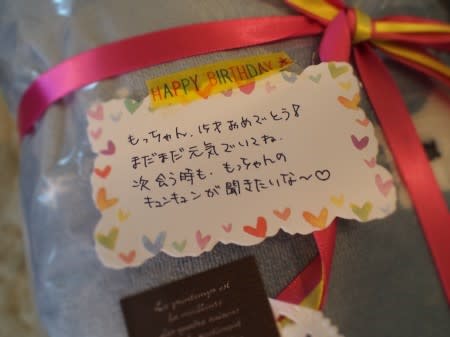 HAPPY BIRTHDAY
もっちゃん、15才おめでとう!
まだまだ元気でいてね。
次会う時も、もっちゃんの
キュンキュンが聞きたいな〜♡
Le printemps est
la meilleure
des quatre saisons